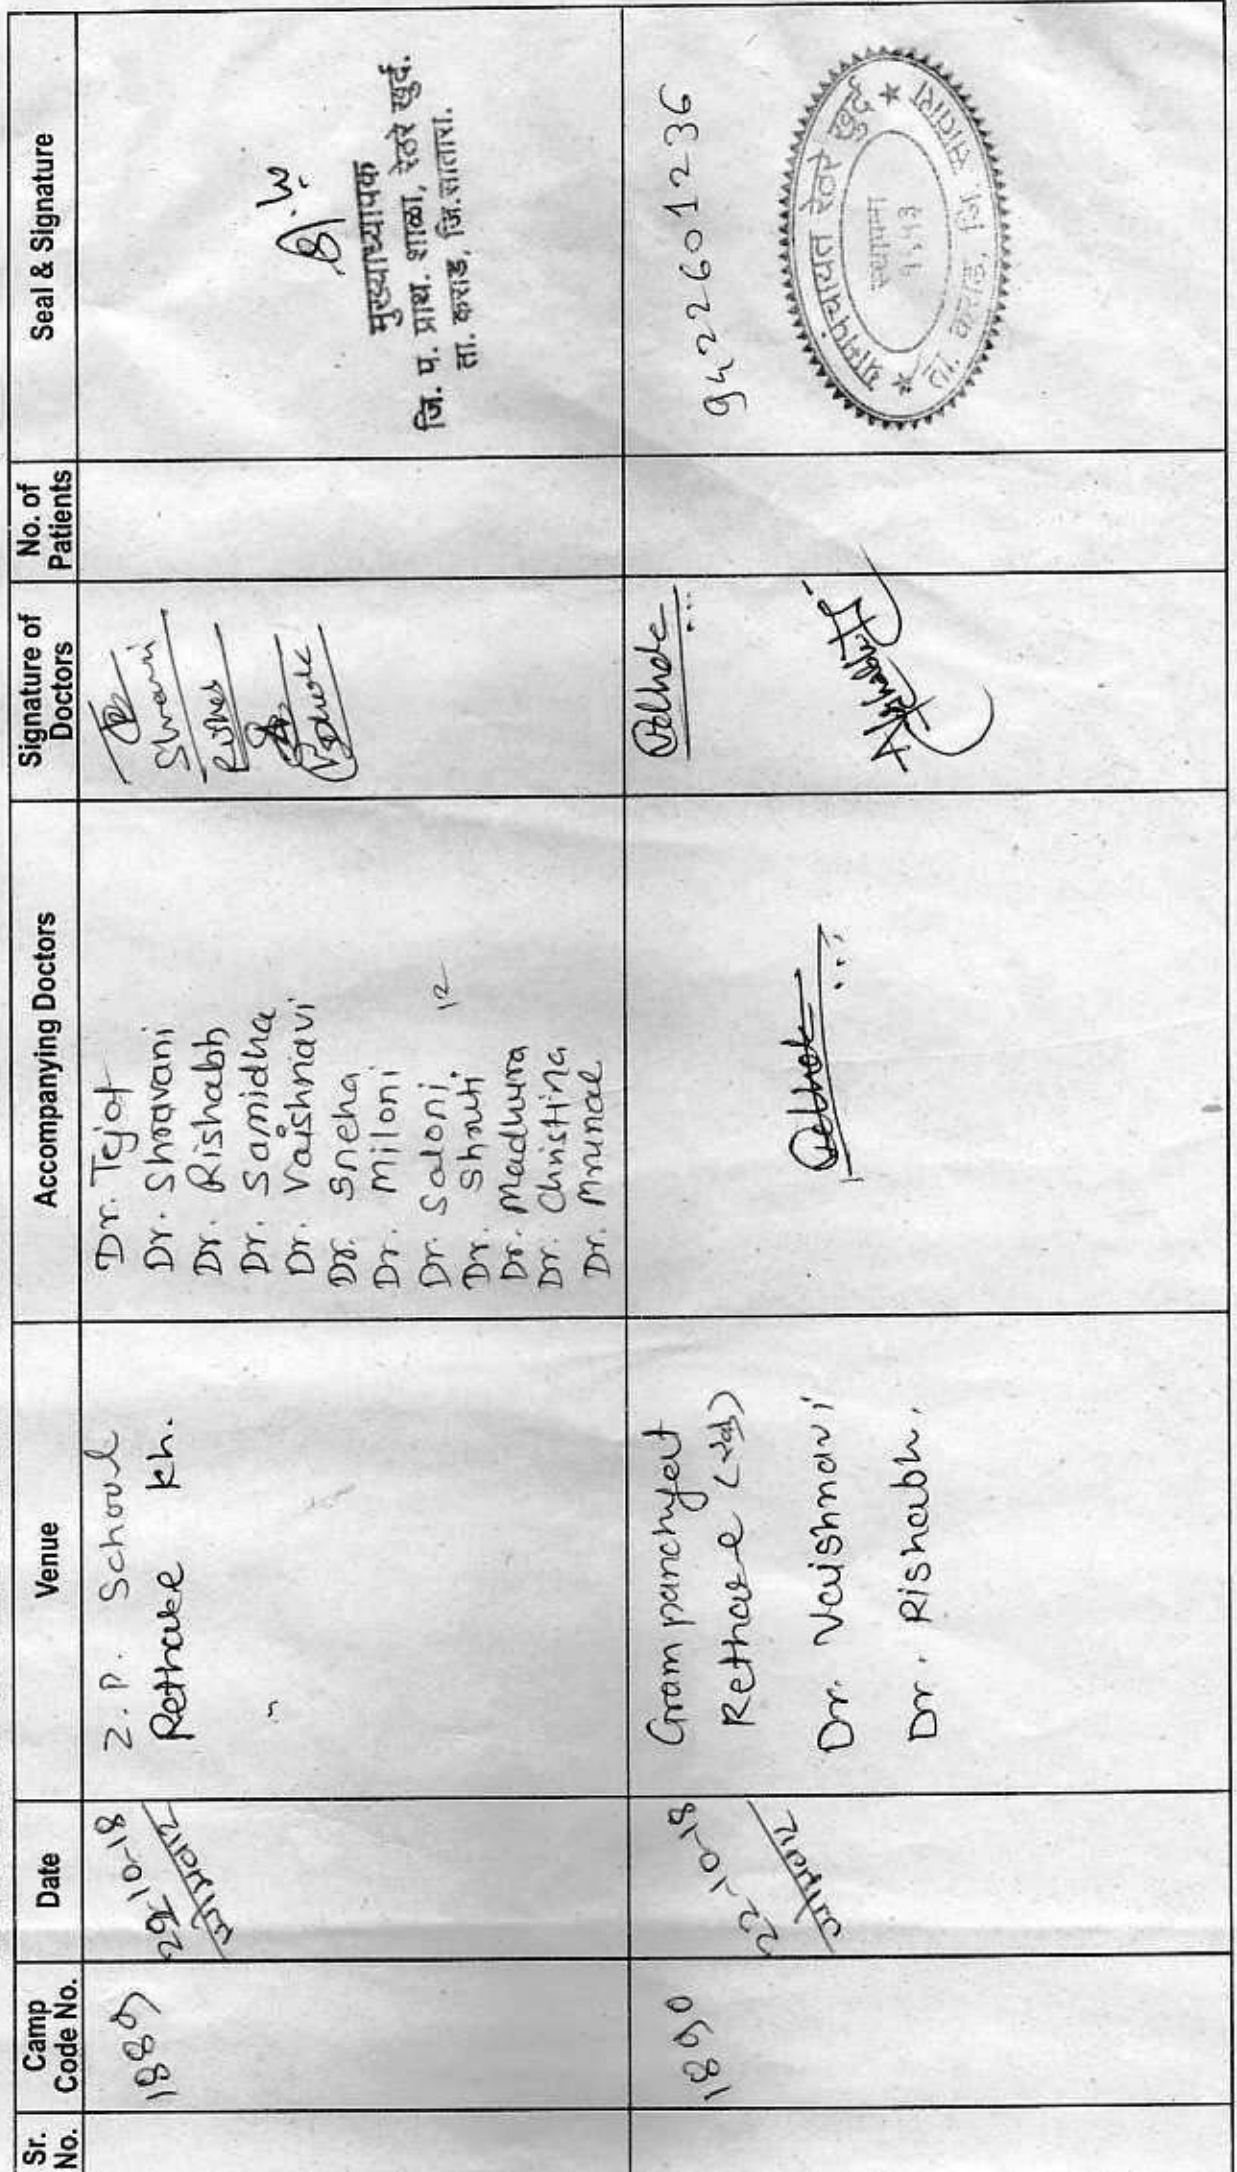 Sr. No.
Camp Code No.
Date
Venue
Accompanying Doctors
Signature of Doctors
No. of Patients
Seal & Signature
1889
22-10-18
सोमवार
Z.P. School
Rethare Kh.
Dr. Tejat
Dr. Shravani
Dr. Rishabh
Dr. Samidha
Dr. Vaishnavi
Dr. Sneha
Dr. Miloni
Dr. Saloni
Dr. Shruti
12
Dr. Madhura
Dr. Christina
Dr. Mrunal
Shravani
मुख्याध्यापक
जि. प. प्राथ. शाळा, रेठरे खुर्द.
ता. कराड, जि.सातारा.
1890
22-10-18
सोमवार
Gram panchyeat
Rethare
Dr. Vaishnavi
Dr. Rishabh.
9422601236
ग्रामपंचायत रेठरे खुर्द
स्थापना
१९५३
ता. कराड, जि. सातारा